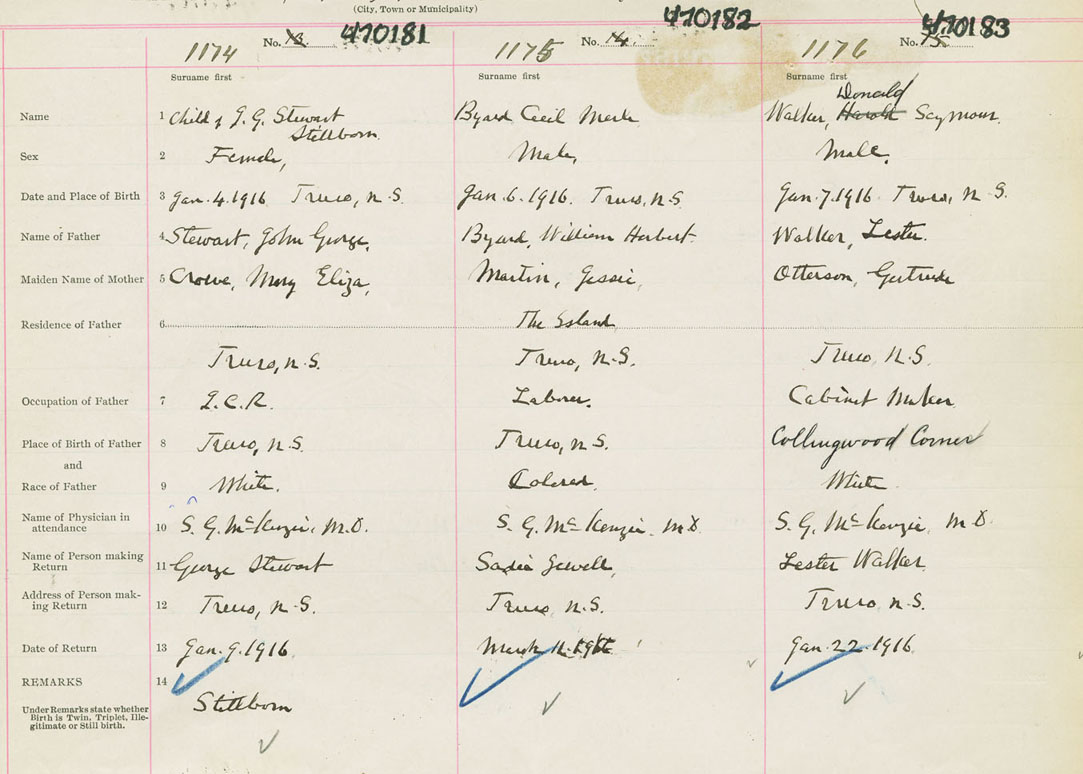 (City, Town or Municipality)
470181 470182 470183
1174 No. 13 1175 No. 14. 1176 No. 15
Surname first Surname first Surname first
Donald
Name 1 Child of J. G. Stewart Byard Cecil Merle Walker, Harold Seymour
Stillborn
Sex 2 Female, Male, Male,
Date and Place of Birth 3 Jan. 4. 1916 Truro, N.S. Jan. 6. 1916. Truro, N.S Jan. 7. 1916. Truro, N.S.
Name of Father 4 Stewart, John George, Byard, William Herbert. Walker, Lester.
Maiden Name of Mother 5 Crowe, Mary Eliza, Martin, Jessie, Otterson, Gertrude
Residence of Father 6 The Island
Truro, N.S. Truro, N.S. Truro, N.S.
Occupation of Father 7 I.C.R. Laborer. Cabinet Maker
Place of Birth of Father 8 Truro, N.S. Truro, N.S. Collingwood Corner
and
Race of Father 9 White. Colored. White
Name of Physician in
attendance 10 S. G. McKenzie, M.D. S. G. McKenzie, M.D. S. G. McKenzie, M.D.
Name of Person making
Return 11 George Stewart Sadie Jewell, Lester Walker
Address of Person mak-
ing Return 12 Truro, N.S. Truro, N.S. Truro, N.S.
Date of Return 13 Jan. 9. 1916 March 11. 1916 Jan. 22. 1916
REMARKS 14
Under Remarks state whether
Birth is Twin, Triplet, Ille-
gitimate or Still birth.
Stillborn